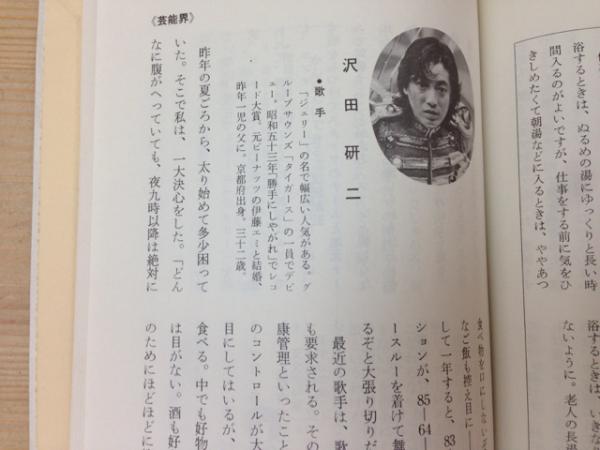 浴するときは、ぬるめの湯にゆっくりと長い時
間入るのがよいですが、仕事をする前に気をひ
きしめたくて朝湯などに入るときは、ややあつ
浴するときは、いきな
ないように。老人の長湯
《芸能界》
沢田研二
●歌手
「ジュリー」の名で幅広い人気がある。グ
ループサウンズ「タイガース」の一員でデビ
ュー。昭和五十三年「勝手にしやがれ」でレコ
ード大賞。元ピーナッツの伊藤エミと結婚、
昨年一児の父に。京都府出身。三十二歳。
昨年の夏ごろから、太り始めて多少困って
いた。そこで私は、一大決心をした。「どん
なに腹がへっていても、夜九時以降は絶対に
食べ物を口にしないぞ
なご飯も控え目に――
して一年すると、83
ションが、85―64―
ースルーを着けて舞
るぞと大張り切りだ
最近の歌手は、歌
も要求される。その
康管理といったこと
のコントロールが大
目にしてはいるが、
食べる。中でも好物
は目がない。酒も好
のためにほどほどに